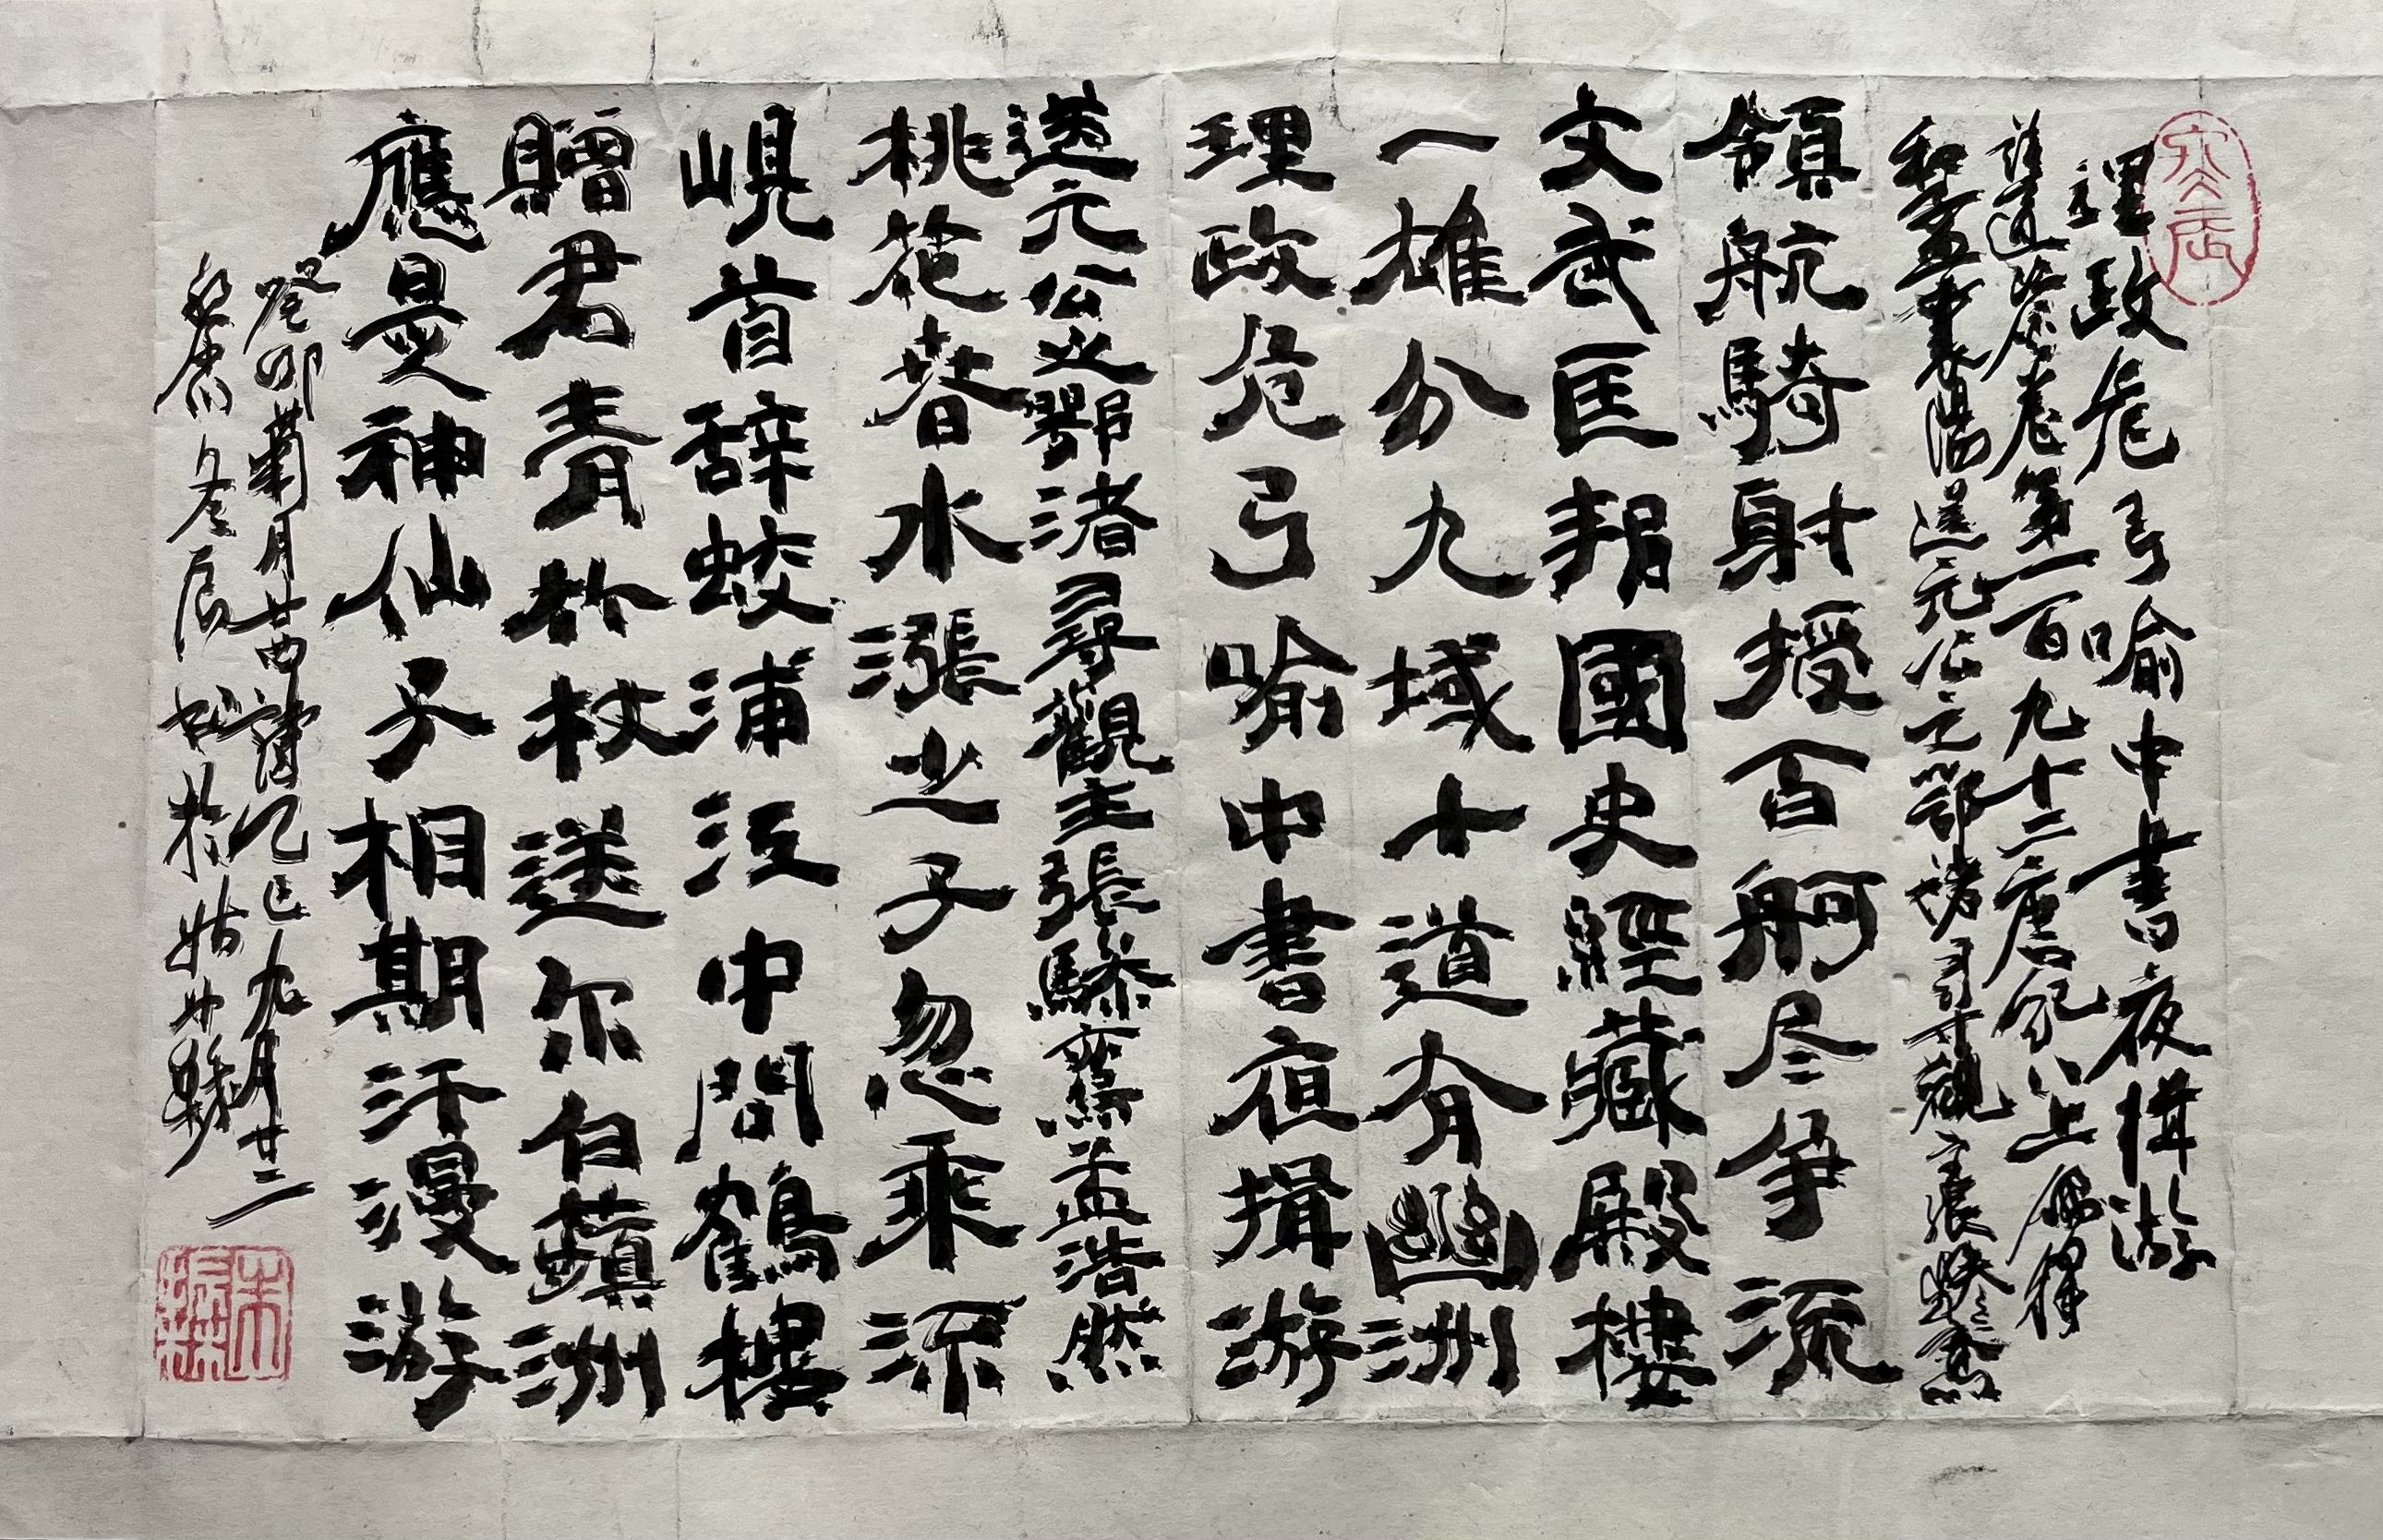 理政危弓喻中書夜楫游
讀通鑒卷第一百九十二唐紀八上並擇
和孟事襄陽送元公之鄂渚尋觀主張驂鸞
領航騎射授百舸尽爭流
文武匡邦國史經藏殿樓
一雄分九域十道有幽洲
理政危弓喻中書夜揖游
送元公之鄂渚尋觀主張驂鸞孟浩然
桃花春水漲之子忽乘流
峴首辞蛟浦江中問鶴樓
贈君青竹杖送尔白蘋洲
應是神仙子相期汗漫游
癸卯菊月廿四讀乙巳九月廿二
於姑蘇